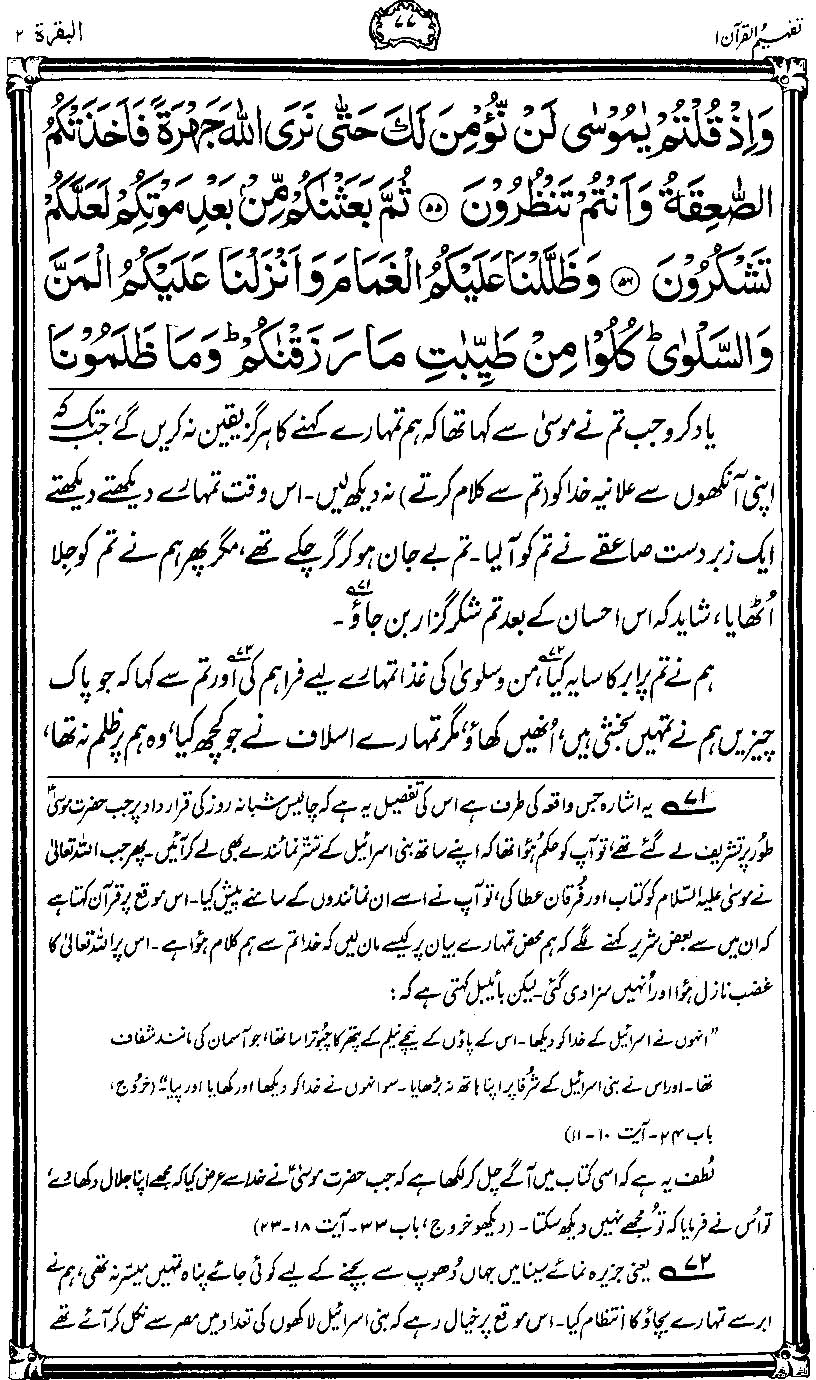 تفہیم القرآن ۱
۷۷
البقرۃ ۲
وَاِذْ قُلْتُمْ يٰمُوْسٰى لَنْ نُّؤْمِنَ لَكَ حَتّٰى نَرَى اللّٰهَ جَهْرَةً فَاَخَذَتْكُمُ
الصّٰعِقَةُ وَاَنْتُمْ تَنْظُرُوْنَ ۝۵۵ ثُمَّ بَعَثْنٰكُمْ مِّنْۢ بَعْدِ مَوْتِكُمْ لَعَلَّكُمْ
تَشْكُرُوْنَ ۝۵۶ وَظَلَّلْنَا عَلَيْكُمُ الْغَمَامَ وَاَنْزَلْنَا عَلَيْكُمُ الْمَنَّ
وَالسَّلْوٰىؕ كُلُوْا مِنْ طَيِّبٰتِ مَا رَزَقْنٰكُمْؕ وَمَا ظَلَمُوْنَا
یاد کرو جب تم نے موسیٰ سے کہا تھا کہ ہم تمہارے کہنے کا ہرگز یقین نہ کریں گے، جب تک کہ
اپنی آنکھوں سے علانیہ خدا کو (تم سے کلام کرتے) نہ دیکھ لیں۔ اس وقت تمہارے دیکھتے دیکھتے
ایک زبردست صاعقے نے تم کو آ لیا۔ تم بے جان ہو کر گر چکے تھے، مگر پھر ہم نے تم کو جِلا
اُٹھایا، شاید کہ اس احسان کے بعد تم شکر گزار بن جاؤ ۷۱۔
ہم نے تم پر ابر کا سایہ کیا ۷۲، من و سلویٰ کی غذا تمہارے لیے فراہم کی ۷۳ اور تم سے کہا کہ جو پاک
چیزیں ہم نے تمہیں بخشی ہیں، اُنھیں کھاؤ، مگر تمہارے اسلاف نے جو کچھ کیا، وہ ہم پر ظلم نہ تھا،
۷۱ یہ اشارہ جس واقعہ کی طرف ہے اس کی تفصیل یہ ہے کہ چالیس شبانہ روز کی قرار داد پر جب حضرت موسیٰؑ
طُور پر تشریف لے گئے تھے، تو آپ کو حکم ہُوا تھا کہ اپنے ساتھ بنی اسرائیل کے ستّر نمائندے بھی لے کر آئیں۔ پھر جب اللہ تعالیٰ
نے موسیٰ علیہ السّلام کو کتاب اور فُرقان عطا کی، تو آپ نے اسے ان نمائندوں کے سامنے پیش کیا۔ اس موقع پر قرآن کہتا ہے
کہ ان میں سے بعض شریر کہنے لگے کہ ہم محض تمہارے بیان پر کیسے مان لیں کہ خدا تم سے ہم کلام ہُوا ہے۔ اس پر اللہ تعالیٰ کا
غضب نازل ہُوا اور اُنہیں سزا دی گئی۔ لیکن بائیبل کہتی ہے کہ:
”انہوں نے اسرائیل کے خدا کو دیکھا۔ اس کے پاؤں کے نیچے نیلم کے پتھر کا چبُوترا سا تھا، جو آسمان کی مانند شفاف
تھا۔ اور اس نے بنی اسرائیل کے شُرفا پر اپنا ہاتھ نہ بڑھایا۔ سو انہوں نے خدا کو دیکھا اور کھایا اور پیا“ (خُرُوج،
باب ۲۴۔ آیت ۱۰۔۱۱)
لُطف یہ ہے کہ اسی کتاب میں آگے چل کر لکھا ہے کہ جب حضرت موسیٰؑ نے خدا سے عرض کیا کہ مجھے اپنا جلال دکھا دے،
تو اُس نے فرمایا کہ تُو مجھے نہیں دیکھ سکتا۔ (دیکھو خروج، باب ۳۳۔ آیت ۱۸۔۲۳)
۷۲ یعنی جزیرہ نمائے سینا میں جہاں دُھوپ سے بچنے کے لیے کوئی جائے پناہ تمہیں میسّر نہ تھی، ہم نے
ابر سے تمہارے بچاؤ کا انتظام کیا۔ اس موقع پر خیال رہے کہ بنی اسرائیل لاکھوں کی تعداد میں مصر سے نکل کر آئے تھے